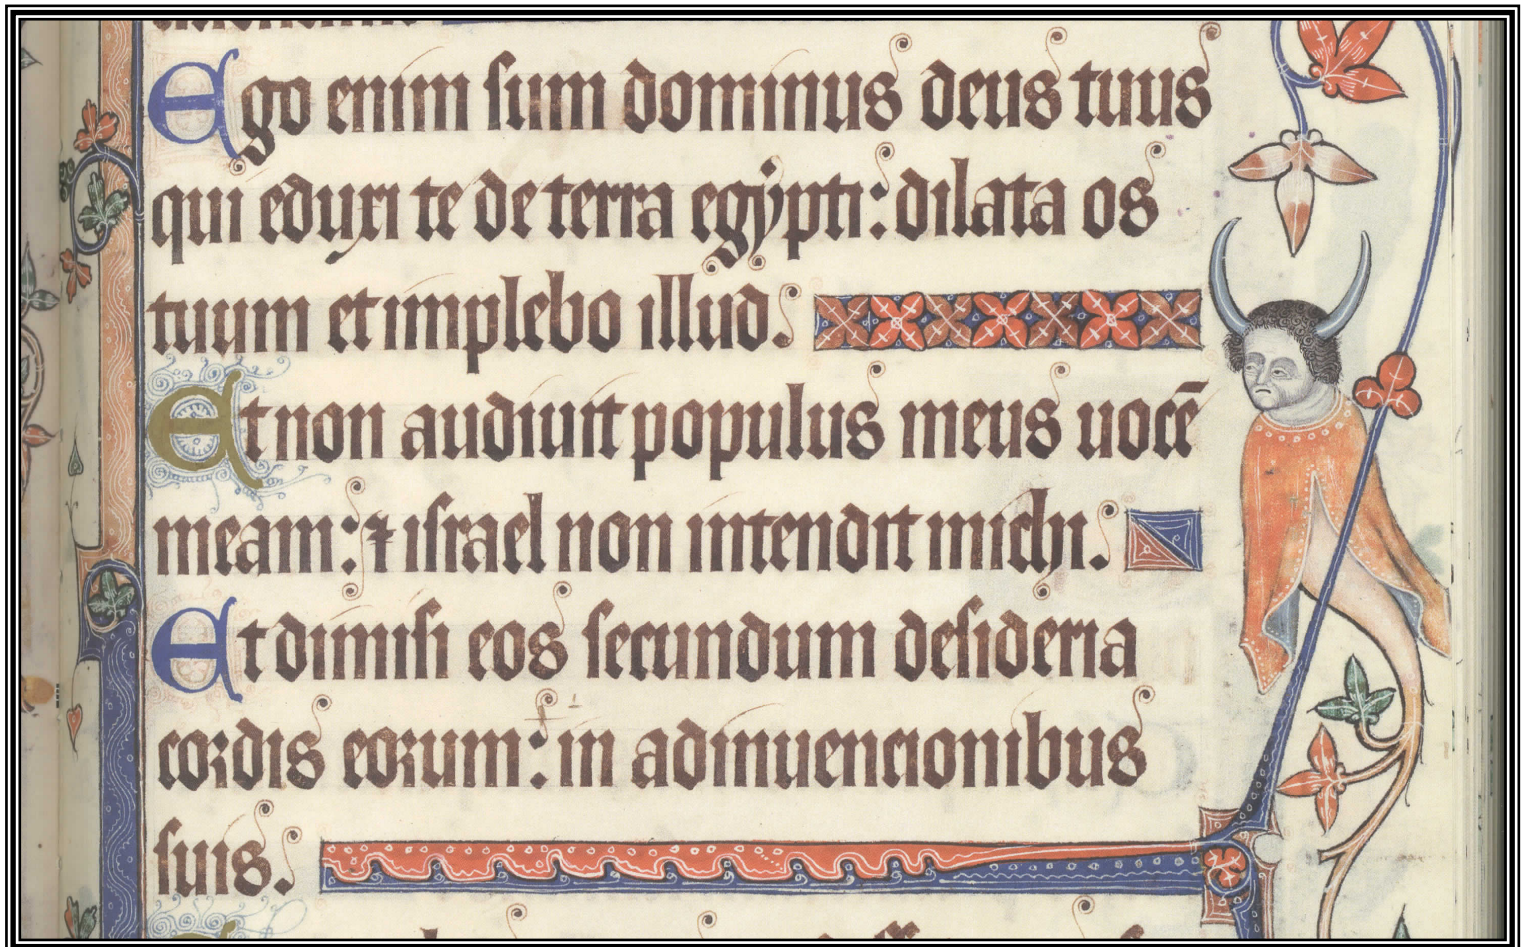 Ego enim sum dominus deus tuus
qui eduxi te de terra egypti: dilata os
tuum et implebo illud.
Et non audiuit populus meus uocē
meam: ⁊ israel non intendit michi.
Et dimisi eos secundum desideria
cordis eorum: in adinuencionibus
suis.